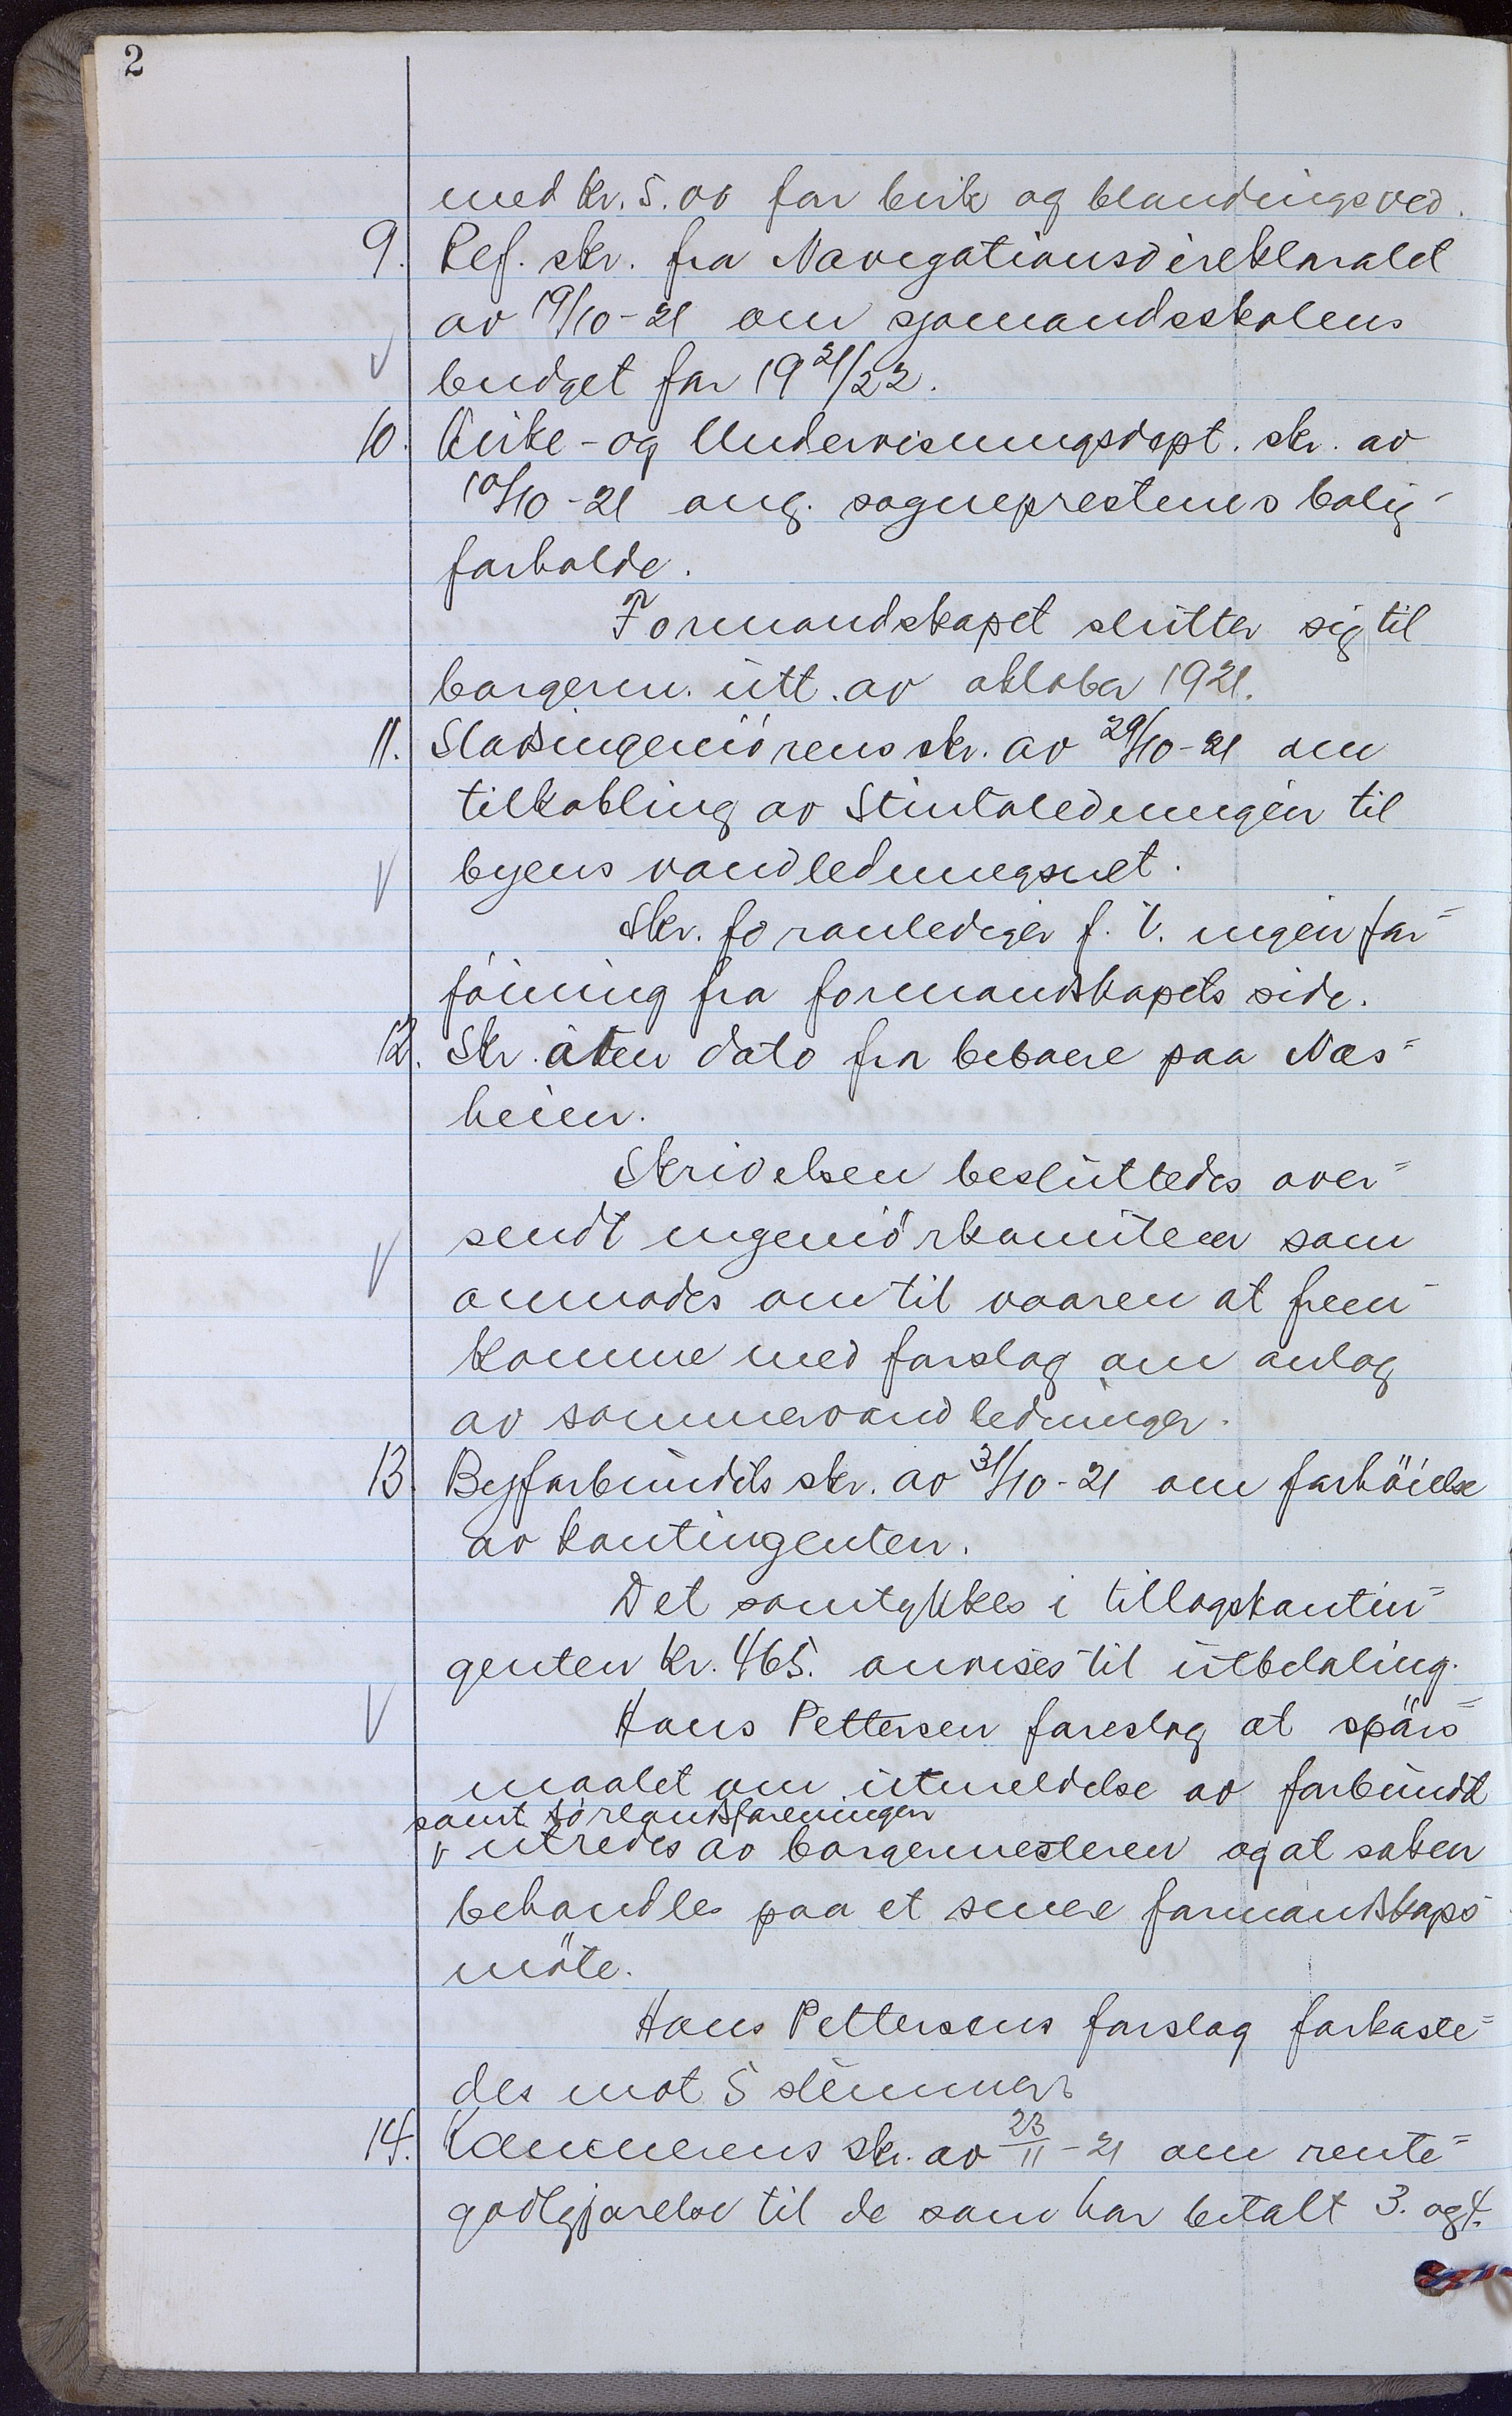 2
med kr. 5.00 for birk og blandingsved.
9. Ref. skr. fra Navigationsdirektoratet
av 19/10-21 om sjømandsskolens
budget for 1921/22.
10. Kirke- og Undervisningsdept. skr. av
10/10-21 ang. sogneprestens bolig-
forholde.
Formandskapet slutter sig til
borgerm. utt. av oktober 1921.
11. Stadsingeniörens skr. av 29/10-21 om
tilkobling av Stintaledningen til
byens vandledningsnet.
Skr. foranlediger f. t. ingen for=
föining fra formandskapets side.
12. Skr. uten dato fra beboere paa Næs=
heien.
Skrivelsen besluttedes over=
sendt ingeniörkomiteen som
anmodes om til vaaren at frem-
komme med forslag om anlæg
av sommervandledninger.
13. Byforbundets skr. av 31/10-21 om forhöielse
av kontingenten.
Det samtykkes i tillægskontin=
genten kr. 465. anvises til utbetaling.
Hans Pettersen foreslog at spörs=
maalet om utmeldelse av forbundet
samt Sörlandsforeningen
utredes av borgermesteren og at saken
behandles paa et senere formandskaps-
möte.
Hans Pettersens forslag forkaste=
des mot 5 stemmer.
14. Kæmnerens skr. av 23/11-21 om rente=
godtgjørelse til de som har betalt 3. og 4.